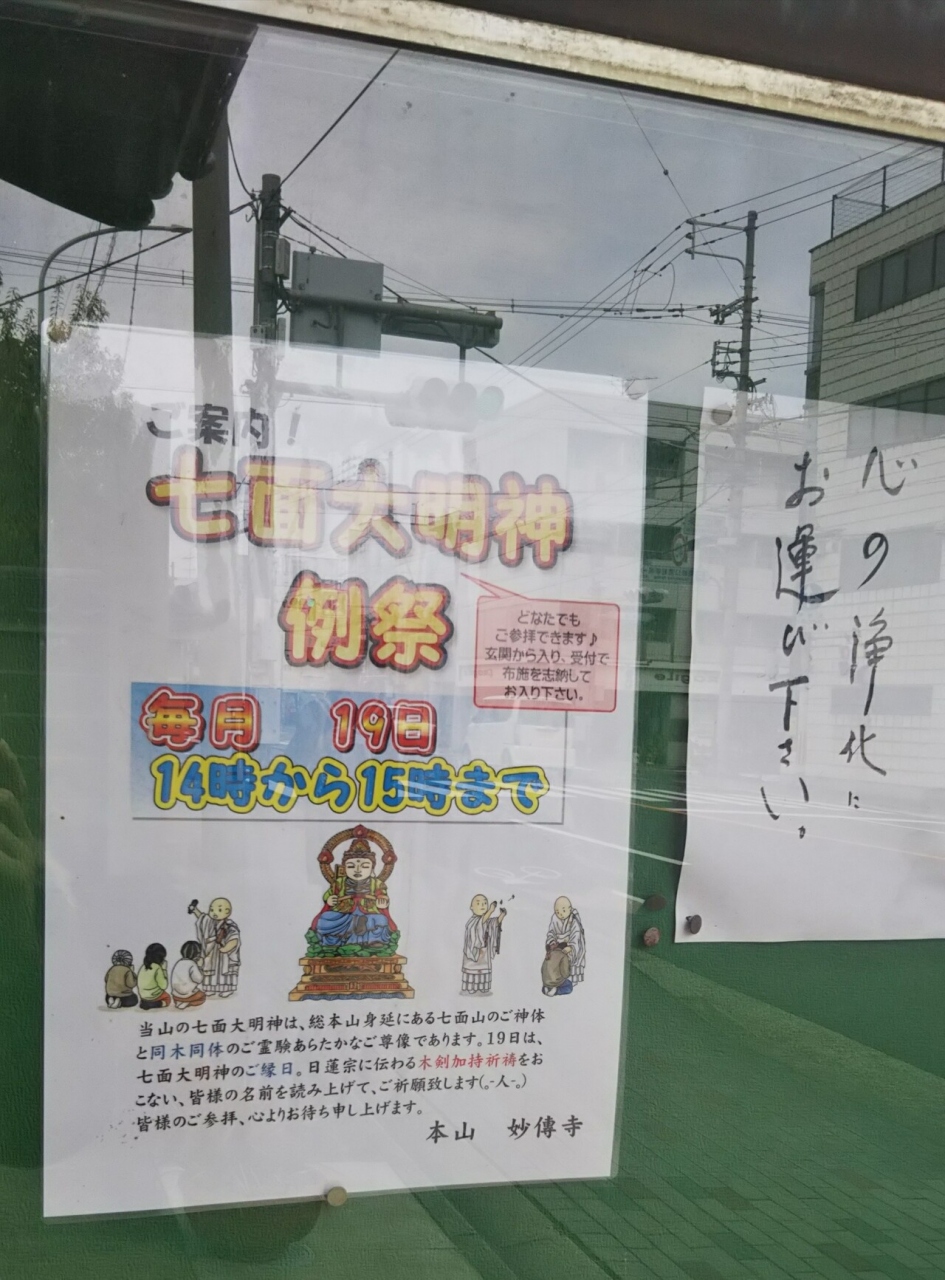 ご案内!
七面大明神
例祭
どなたでも
ご参拝できます♪
玄関から入り、受付で
布施を志納して
お入り下さい。
毎月 19日
14時から15時まで
当山の七面大明神は、総本山身延にある七面山のご神体
と同木同体のご霊験あらたかなご尊像であります。19日は、
七面大明神のご縁日。日蓮宗に伝わる木剣加持祈祷をお
こない、皆様の名前を読み上げて、ご祈願致します(｡-人-｡)
皆様のご参拝、心よりお待ち申し上げます。
本山 妙傳寺
心の浄化に
お運び下さい。